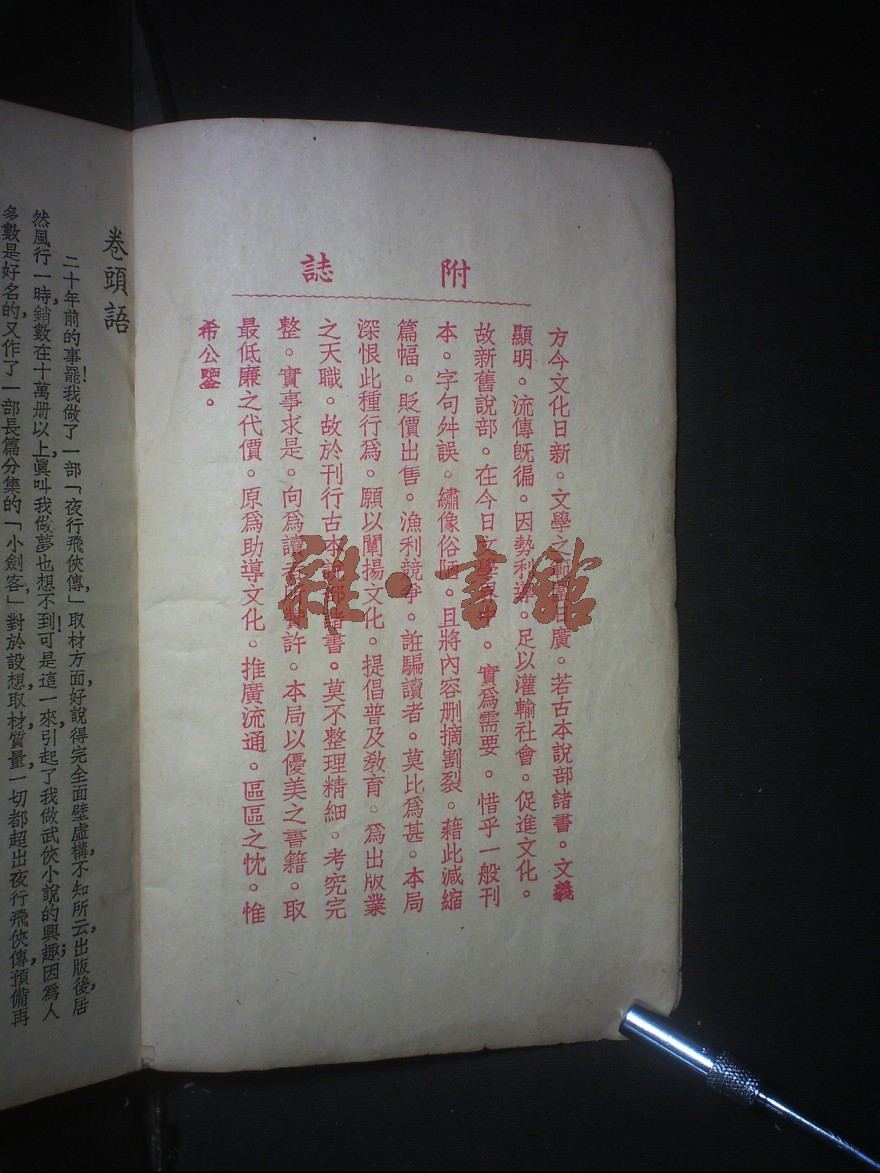 附誌
方今文化日新。文學之範圍日廣。若古本說部諸書。文義
顯明。流傳旣徧。因勢利導。足以灌輸社會。促進文化。
故新舊說部。在今日文學界中。實爲需要。惜乎一般刊
本。字句舛誤。繡像俗陋。且將內容删摘割裂。藉此減縮
篇幅。貶價出售。漁利競爭。誑騙讀者。莫比爲甚。本局
深恨此種行爲。願以闡揚文化。提倡普及敎育。爲出版業
之天職。故於刊行古本說部諸書。莫不整理精細。考究完
整。實事求是。向爲讀者所贊許。本局以優美之書籍。取
最低廉之代價。原爲助導文化。推廣流通。區區之忱。惟
希公鑒。
卷頭語
二十年前的事罷!我做了一部「夜行飛俠傳,」取材方面,好說得完全面壁虛構,不知所云,出版後,居
然風行一時,銷數在十萬册以上,眞叫我做夢也想不到!可是這一來,引起了我做武俠小說的興趣;因爲人
多數是好名的,又作了一部長篇分集的「小劍客」對於設想,取材,質量,一切都超出夜行飛俠傳,預備再
雜·書館